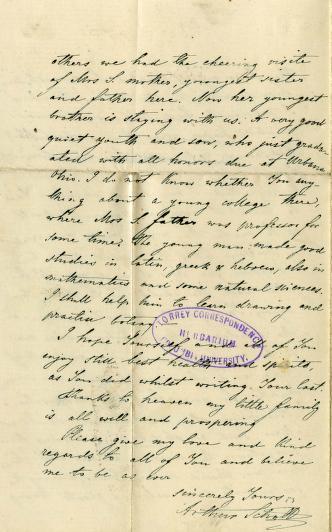 others we had the cheering visite
of Mrs S. mother, youngest sister
and father here. Now her youngest
brother is staying with us: A very good
quiet youth and son, who just gradu-
ated with all honors due at Urbana
Ohio. I do not know whether You any
thing about a young college there,
where Mrs S. father was professor for
some time? The young man made good
studies in latin, greek & hebrew, also in
mathematics and some natural sciences.
I shall help him to learn drawing and
practise
TORREY CORRESPONDENCE
HERBARIUM
COLUMBIA UNIVERSITY.
I hope Yourself and of You
enjoy still best health and spirits
as You did whilst writing Your last.
Thanks to heaven my little family
is all well and prospering
Please give my love and kind
regards to all of You and believe
me to be as ever
sincerely Yours
Arthur Schott